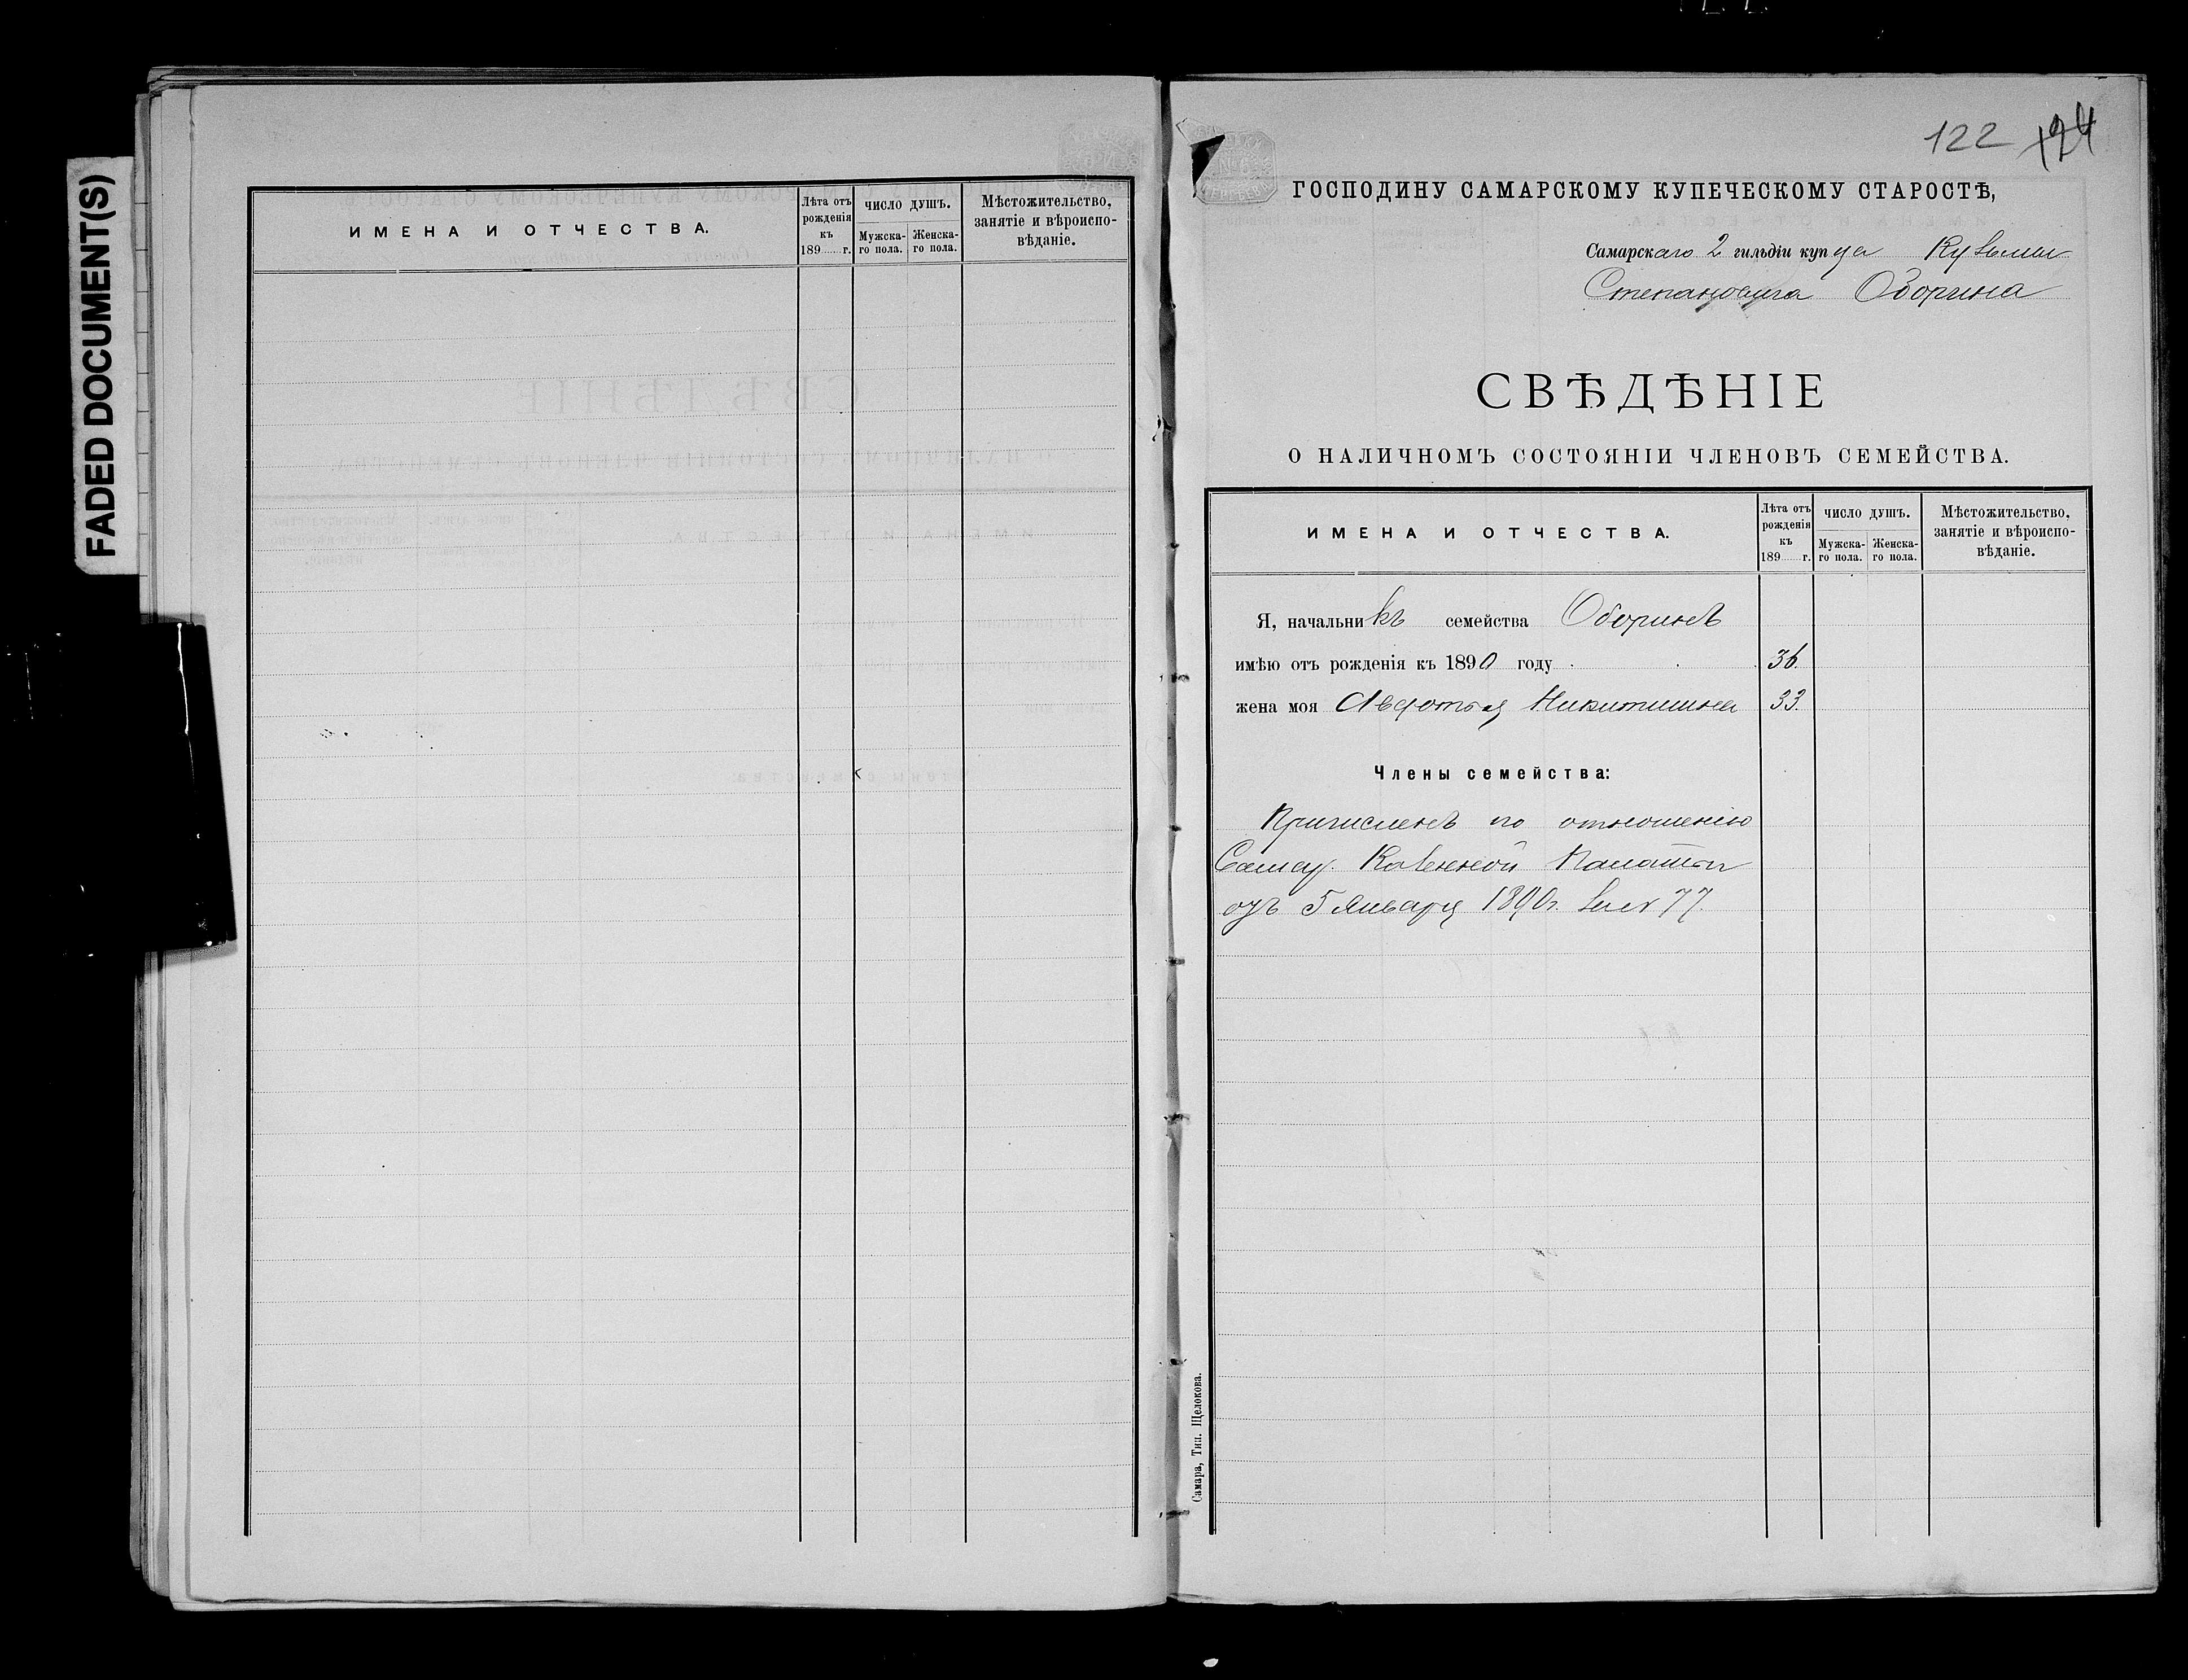 FADED DOCUMENT(S)
ИМЕНА И ОТЧЕСТВА.
Лѣта отъ рожденія къ 189 г.
ЧИСЛО ДУШЪ.
Мужска-го пола.
Женска-го пола.
Мѣстожительство, занятіе и вѣроиспо-вѣданіе.
122 124
ГОСПОДИНУ САМАРСКОМУ КУПЕЧЕСКОМУ СТАРОСТѢ,
Самарскаго 2 гильдіи купца Кузьмы
Степановича Оборина
СВѢДѢНІЕ
О НАЛИЧНОМЪ СОСТОЯНІИ ЧЛЕНОВЪ СЕМЕЙСТВА.
ИМЕНА И ОТЧЕСТВА.
Лѣта отъ рожденія къ 189 г.
ЧИСЛО ДУШЪ.
Мужска-го пола.
Женска-го пола.
Мѣстожительство, занятіе и вѣроиспо-вѣданіе.
Я, начальникъ семейства Оборинъ
имѣю отъ рожденія къ 1890 году 36.
жена моя Авдотья Никитишна 33.
Члены семейства:
Причисленъ по отношенію
Самар. Казенной Палаты
отъ 5 Января 1890г. за № 77.
Самара, Тип. Щелокова.